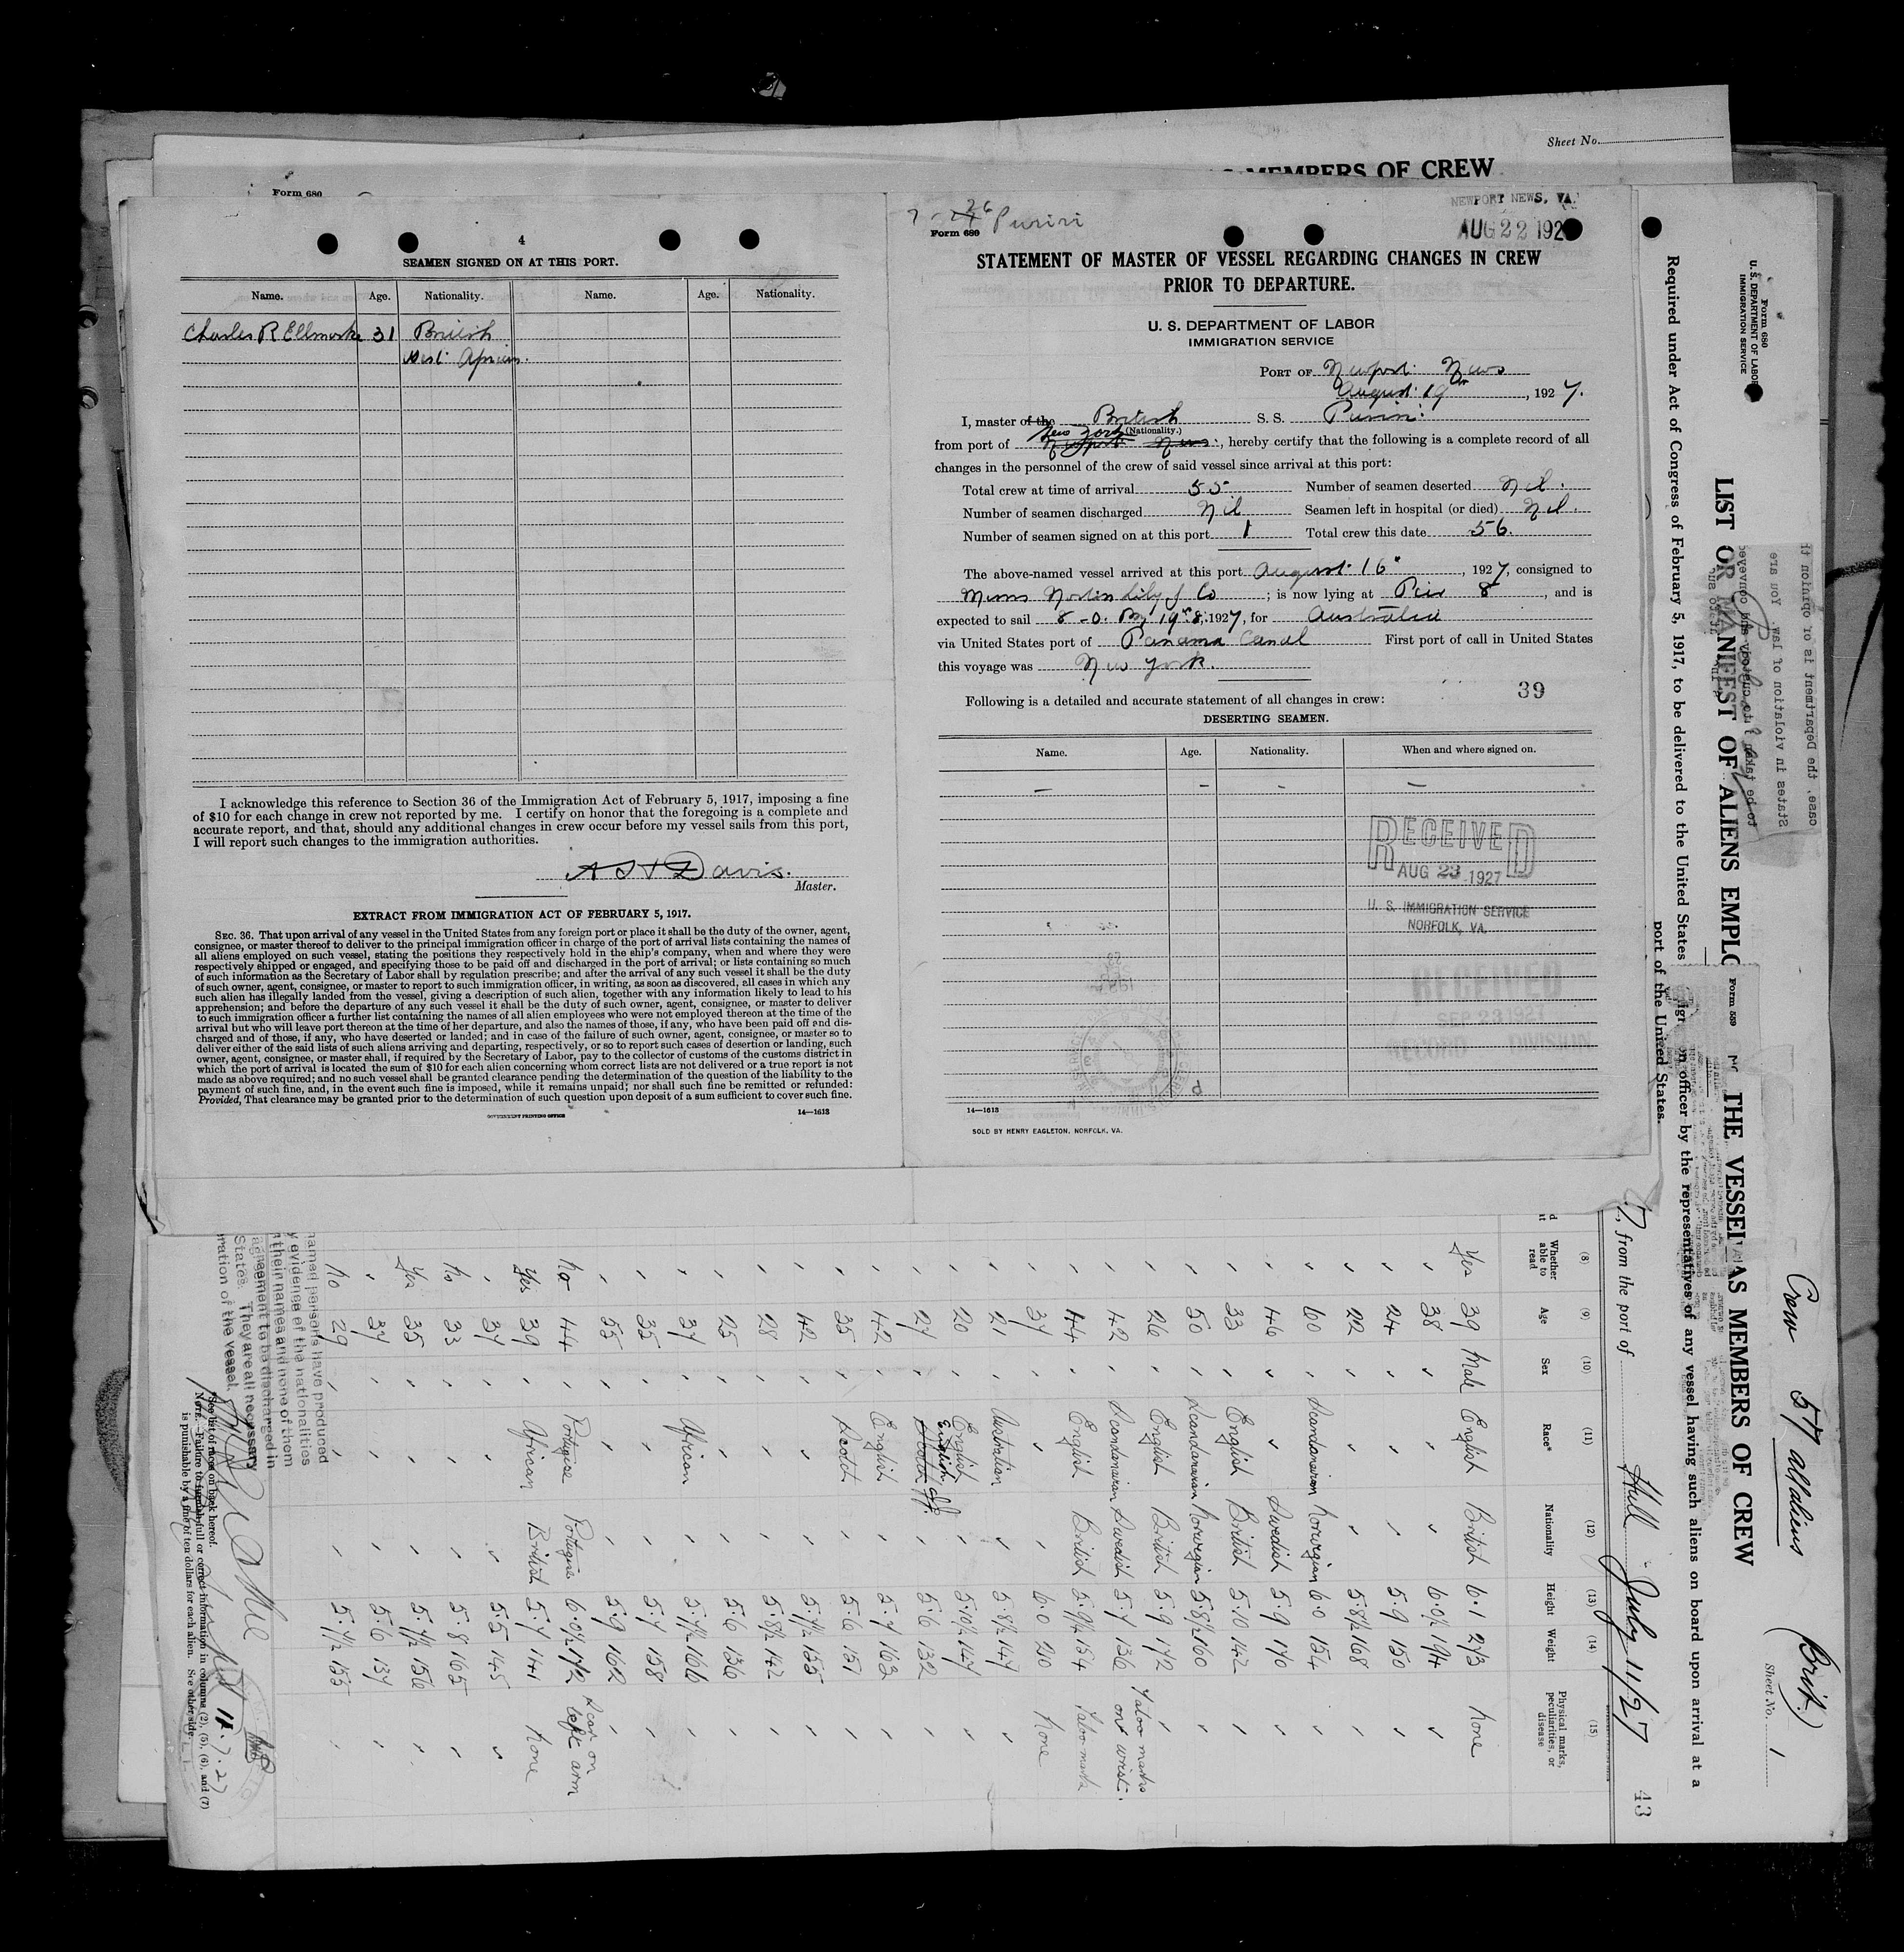 Sheet No.
MEMBERS OF CREW
Form 680
4
SEAMEN SIGNED ON AT THIS PORT.
Name. Age. Nationality. Name. Age. Nationality.
Charles R 31 British
West African.
I acknowledge this reference to Section 36 of the Immigration Act of February 5, 1917, imposing a fine
of $10 for each change in crew not reported by me. I certify on honor that the foregoing is a complete and
accurate report, and that, should any additional changes in crew occur before my vessel sails from this port,
I will report such changes to the immigration authorities.
Davis.
Master.
EXTRACT FROM IMMIGRATION ACT OF FEBRUARY 5, 1917.
SEC. 36. That upon arrival of any vessel in the United States from any foreign port or place it shall be the duty of the owner, agent,
consignee, or master thereof to deliver to the principal immigration officer in charge of the port of arrival lists containing the names of
all aliens employed on such vessel, stating the positions they respectively hold in the ship's company, when and where they were
respectively shipped or engaged, and specifying those to be paid off and discharged in the port of arrival; or lists containing so much
of such information as the Secretary of Labor shall by regulation prescribe; and after the arrival of any such vessel it shall be the duty
of such owner, agent, consignee, or master to report to such immigration officer, in writing, as soon as discovered, all cases in which any
such alien has illegally landed from the vessel, giving a description of such alien, together with any information likely to lead to his
apprehension; and before the departure of any such vessel it shall be the duty of such owner, agent, consignee, or master to deliver
to such immigration officer a further list containing the names of all alien employees who were not employed thereon at the time of the
arrival but who will leave port thereon at the time of her departure, and also the names of those, if any, who have been paid off and dis-
charged and of those, if any, who have deserted or landed; and in case of the failure of such owner, agent, consignee, or master so to
deliver either of the said lists of such aliens arriving and departing, respectively, or so to report such cases of desertion or landing, such
owner, agent, consignee, or master shall, if required by the Secretary of Labor, pay to the collector of customs of the customs district in
which the port of arrival is located the sum of $10 for each alien concerning whom correct lists are not delivered or a true report is not
made as above required; and no such vessel shall be granted clearance pending the determination of the question of the liability to the
payment of such fine, and, in the event such fine is imposed, while it remains unpaid; nor shall such fine be remitted or refunded:
Provided, That clearance may be granted prior to the determination of such question upon deposit of a sum sufficient to cover such fine.
GOVERNMENT PRINTING OFFICE
14—1613
26 Puriri
Form 680
NEWPORT NEWS, VA.
AUG 22 192
STATEMENT OF MASTER OF VESSEL REGARDING CHANGES IN CREW
PRIOR TO DEPARTURE.
U. S. DEPARTMENT OF LABOR
IMMIGRATION SERVICE
PORT OF Newport News
August 19th, 1927.
I, master of the British S. S. Puriri
(Nationality.)
New York
from port of Newport News, hereby certify that the following is a complete record of all
changes in the personnel of the crew of said vessel since arrival at this port:
Total crew at time of arrival 55 Number of seamen deserted Nil.
Number of seamen discharged Nil Seamen left in hospital (or died) Nil.
Number of seamen signed on at this port 1 Total crew this date 56.
The above-named vessel arrived at this port August 16", 1927, consigned to
Norton Lilly & Co; is now lying at Pier 8, and is
expected to sail 1927, for Australia
via United States port of Panama Canal First port of call in United States
this voyage was New York.
39
Following is a detailed and accurate statement of all changes in crew:
DESERTING SEAMEN.
Name. Age. Nationality. When and where signed on.
— - - —
RECEIVED
AUG 23 1927
U. S. IMMIGRATION SERVICE
NORFOLK, VA.
RECEIVED
SEP 23 1927
RECORD DIVISION
14—1613
SOLD BY HENRY EAGLETON, NORFOLK, VA.
Form 680
U. S. DEPARTMENT OF LABOR
IMMIGRATION SERVICE
Crew 57 all aliens
(Brit.)
Sheet No. 1
LIST OR MANIFEST OF ALIENS EMPLO THE VESSEL AS MEMBERS OF CREW
Form 559
Required under Act of Congress of February 5, 1917, to be delivered to the United States
officer by the representatives of any vessel having such aliens on board upon arrival at a
port of the United States.
7, from the port of Hull July 11/27
43
(8) (9) (10) (11) (12) (13) (14) (15)
Whether able to read Age Sex Race* Nationality Height Weight Physical marks, peculiarities, or disease
Yes 39 Male English British 6.1 213 None
✓ 38 ✓ ✓ ✓ 6.0½ 194 ✓
✓ 24 ✓ ✓ ✓ 5.9 150 ✓
✓ 22 ✓ ✓ ✓ 5.8½ 168 ✓
✓ 60 ✓ Scandanavian Norwegian 6.0 154 ✓
✓ 46 ✓ ✓ Swedish 5.9 170 ✓
✓ 33 ✓ English British 5.10 142 ✓
✓ 50 ✓ Scandanavian Norwegian 5.8½ 160 ✓
✓ 26 ✓ English British 5.9 172 ✓
✓ 42 ✓ Scandanavian Swedish 5.7 136 Tatoo marks on wrist
✓ 44 ✓ English British 5.9½ 154 Tatoo marks
✓ 37 ✓ ✓ ✓ 6.0 210 None
✓ 21 ✓ Australian ✓ 5.8½ 147 ✓
✓ 20 ✓ English ✓ 5.10½ 147 ✓
✓ 27 ✓ English ✓ 5.6 132 ✓
✓ 42 ✓ English ✓ 5.7 163 ✓
✓ 35 ✓ Scotch ✓ 5.6 157 ✓
✓ 42 ✓ ✓ ✓ 5.7½ 155 ✓
✓ 28 ✓ ✓ ✓ 5.8½ 142 ✓
✓ 25 ✓ ✓ ✓ 5.6 136 ✓
✓ 37 ✓ African ✓ 5.7½ 166 ✓
✓ 35 ✓ ✓ ✓ 5.7 158 ✓
✓ 55 ✓ ✓ ✓ 5.9 162 ✓
No 44 ✓ Portugise Portugise 6.0½ 172 Scar on left arm
Yes 39 ✓ African British 5.7 141 None
✓ 37 ✓ ✓ ✓ 5.5 145 ✓
No 33 ✓ ✓ ✓ 5.8 165 ✓
Yes 35 ✓ ✓ ✓ 5.7½ 156 ✓
✓ 37 ✓ ✓ ✓ 5.6 137 ✓
No 29 ✓ ✓ ✓ 5.7½ 155 ✓
named persons have produced
y evidence of the nationalities
their names and none of them
agreement to be discharged in
States. They are all necessary
ration of the vessel.
*See list of races on back hereof.
NOTE.—Failure to furnish full or correct information in columns (2), (5), (6), and (7)
is punishable by a fine of ten dollars for each alien. See other side.